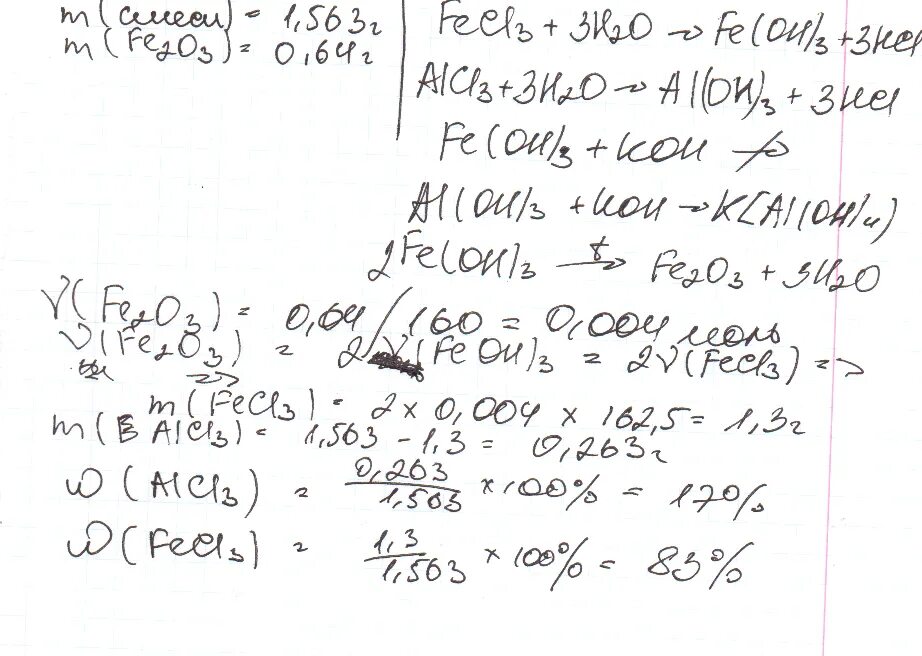 m(смеси) = 1,563г
m(Fe2O3) = 0,64г
FeCl3 + 3H2O → Fe(OH)3 + 3HCl
AlCl3 + 3H2O → Al(OH)3 + 3HCl
Fe(OH)3 + KOH ↛
Al(OH)3 + KOH → K[Al(OH)4)
2Fe(OH)3 t→ Fe2O3 + 3H2O
ν(Fe2O3) = 0,64/160 = 0,004 моль
ν(Fe2O3) = 2ν(FeOH)3 = 2ν(FeCl3) =>
=>
m(FeCl3) = 2 × 0,004 × 162,5 = 1,3г
m(AlCl3) = 1,563 - 1,3 = 0,263г
ω(AlCl3) = 0,263/1,563 × 100% = 17%
ω(FeCl3) = 1,3/1,563 × 100% = 83%